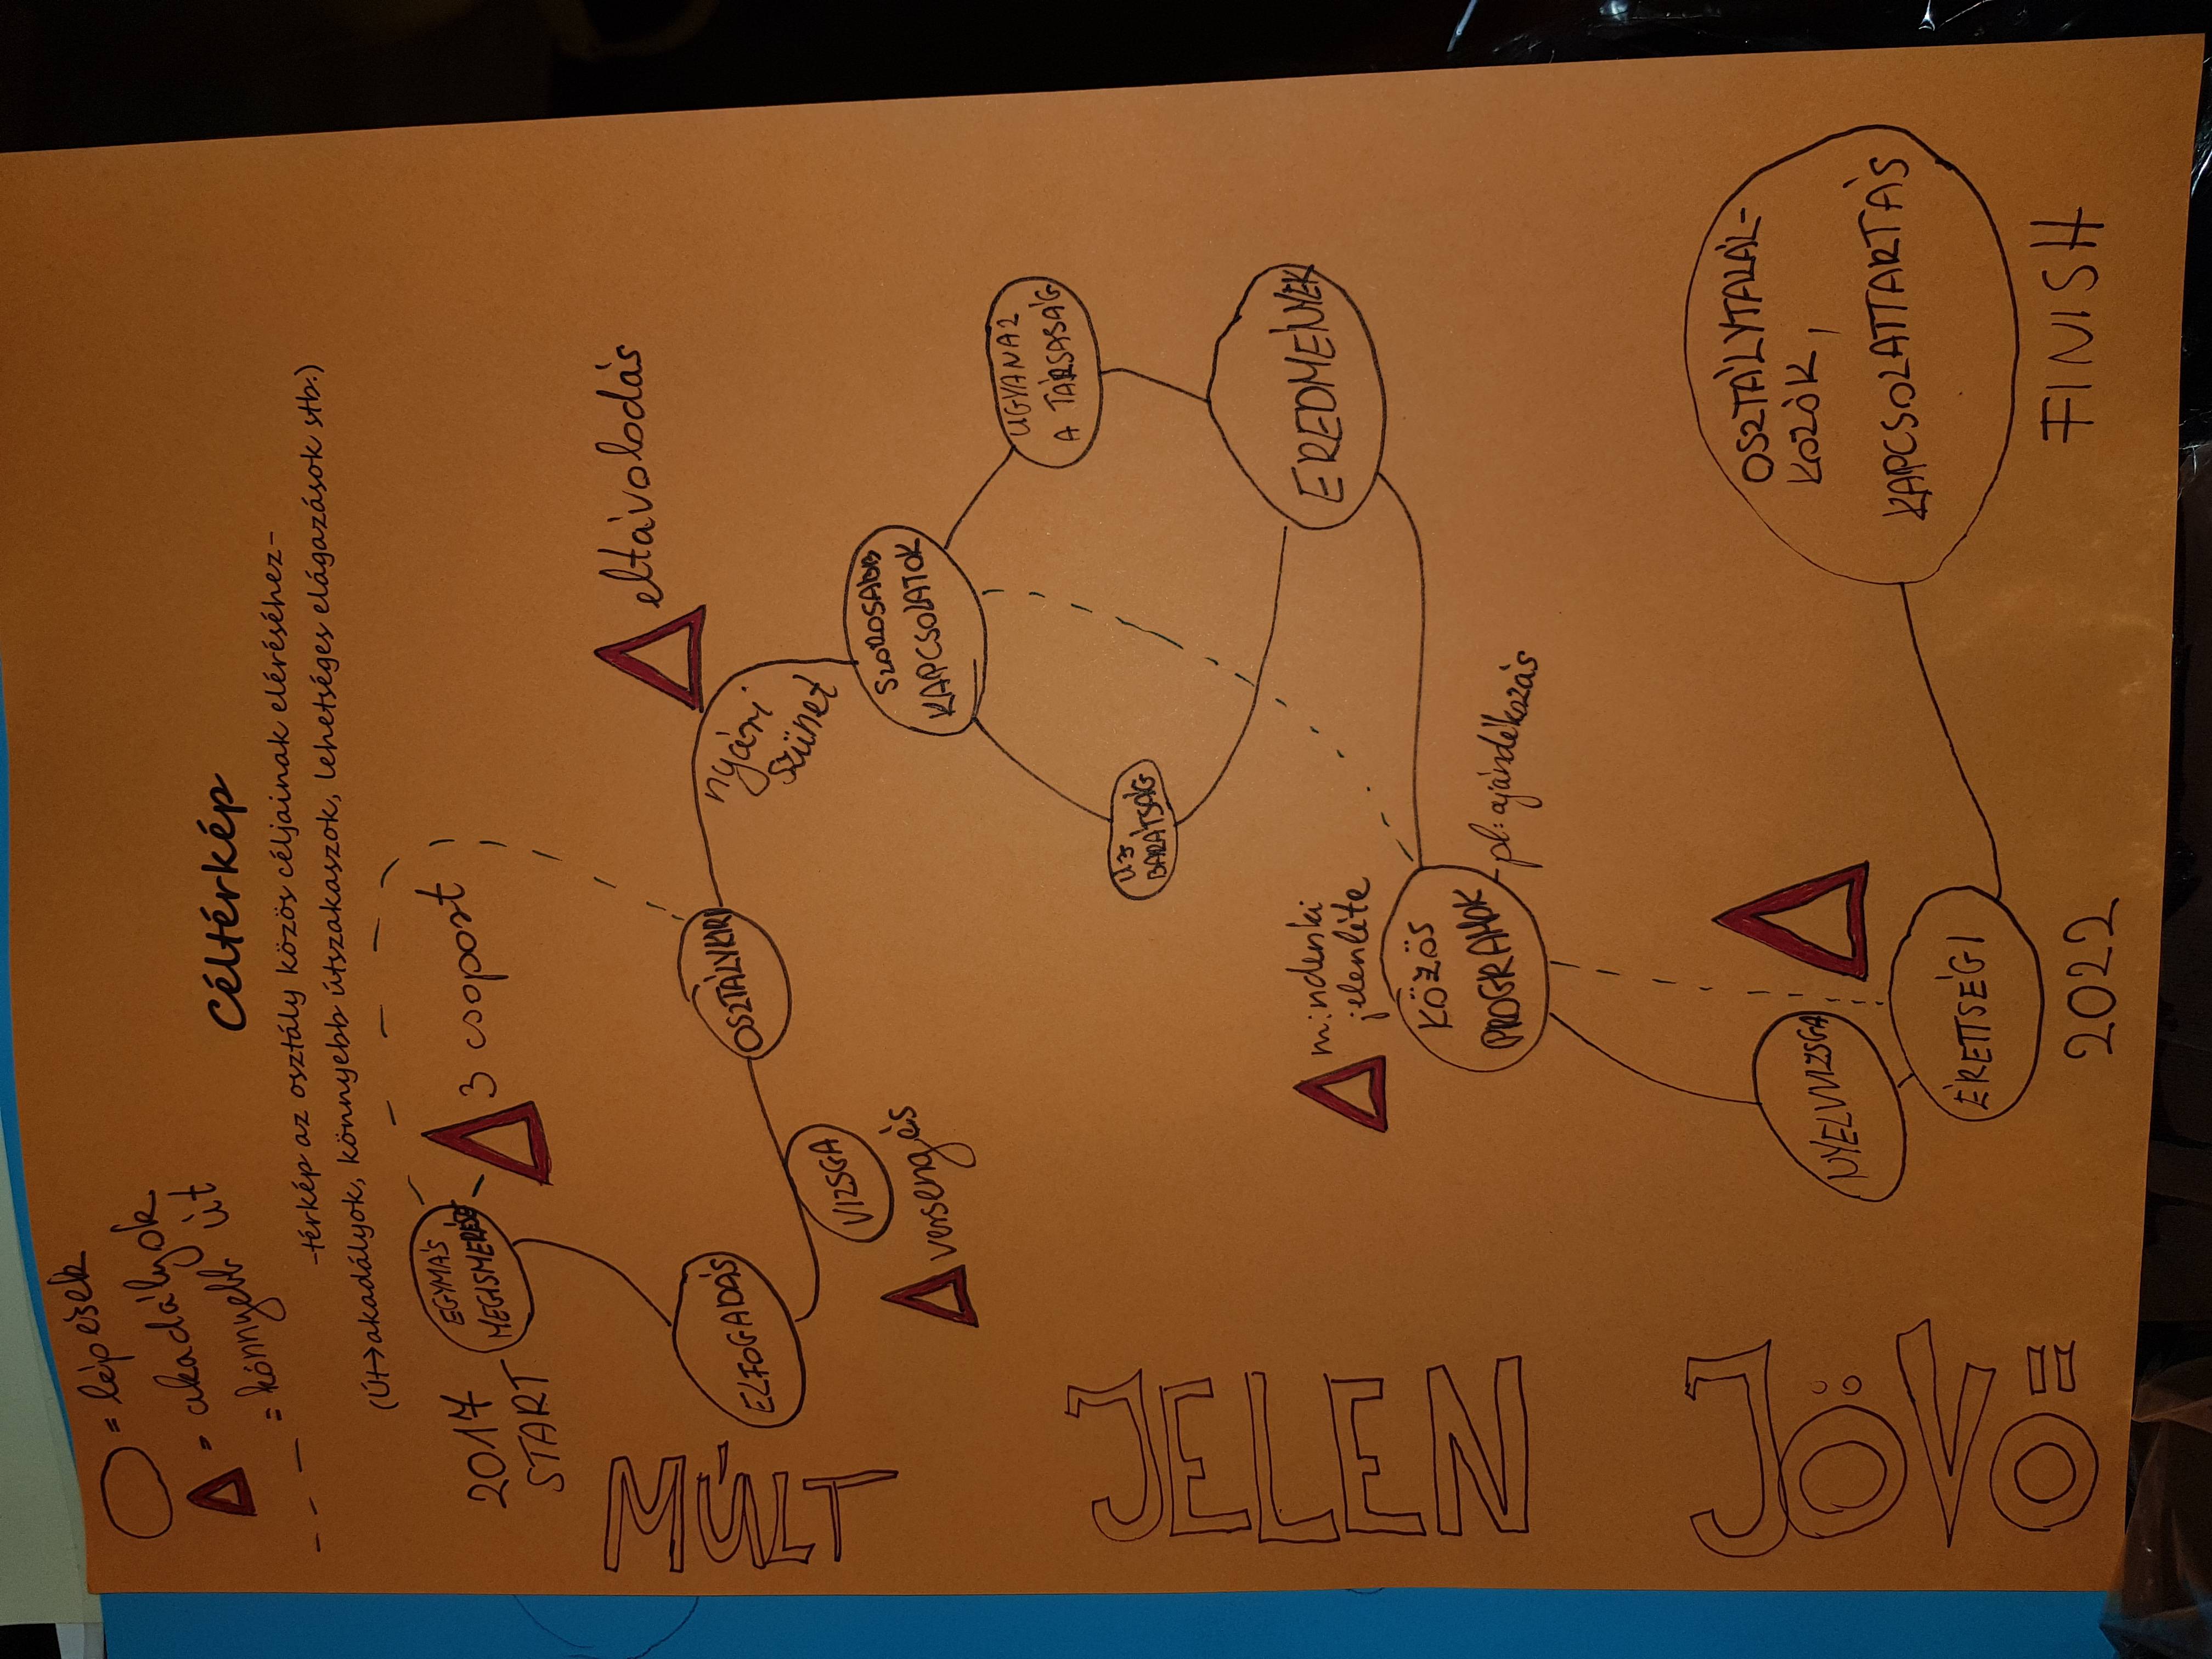 ○ = lépések
△ = akadályok
- - - = könnyebb út
Céltérkép
-térkép az osztály közös céljainak eléréséhez-
(Út→akadályok, könnyebb útszakaszok, lehetséges elágazások stb.)
2017
START
EGYMÁS
MEGISMERÉSE
3 csoport
ELFOGADÁS
VIZSGA
versengés
OSZTÁLYKIR
nyári
szünet
eltávolodás
MÚLT
SZOROSABB
KAPCSOLATOK
UGYANAZ
A TÁRSASÁG
ÚJ
BARÁTSÁG
EREDMÉNYEK
JELEN
mindenki
jelenléte
KÖZÖS
PROGRAMOK
pl: ajándékozás
JÖVŐ
NYELVVIZSGA
ÉRETTSÉGI
2022
OSZTÁLYTALÁL-
KOZÓK,
KAPCSOLATTARTÁS
FINISH